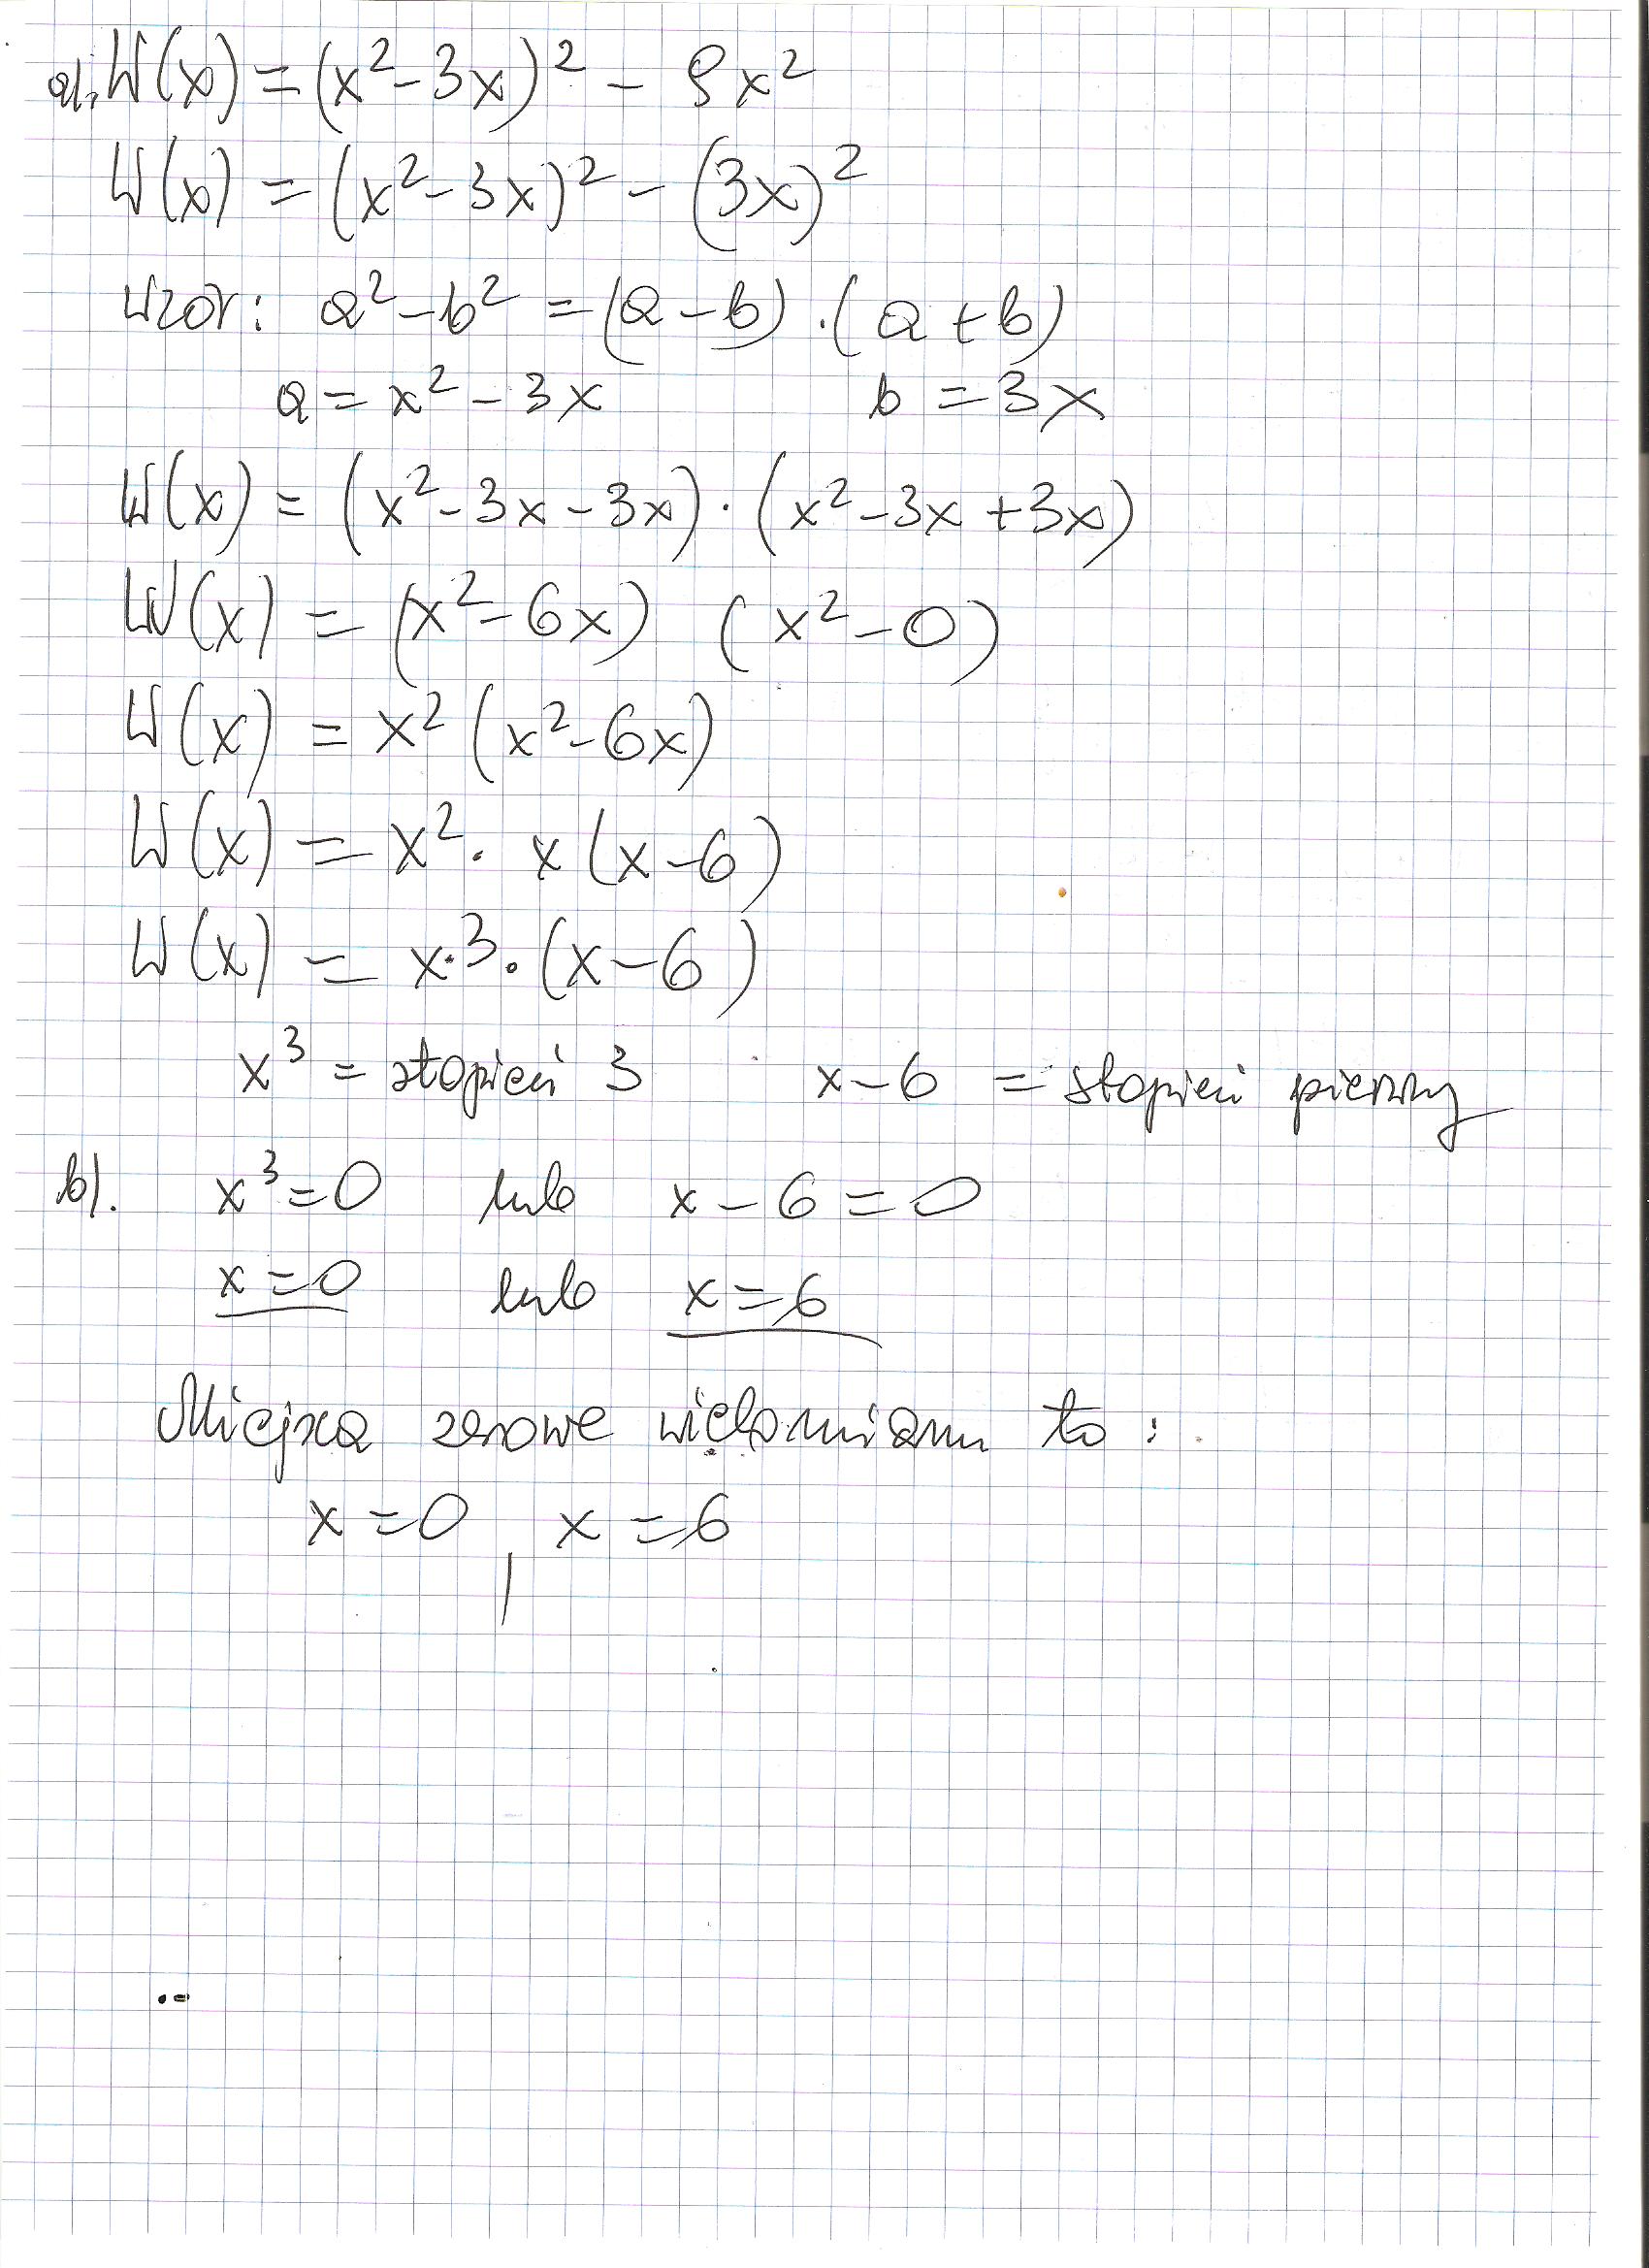 a). W(x) = (x² - 3x)² - 9x²
W(x) = (x² - 3x)² - (3x)²
Wzór: a² - b² = (a - b) · (a + b)
a = x² - 3x b = 3x
W(x) = (x² - 3x - 3x) · (x² - 3x + 3x)
W(x) = (x² - 6x) (x² - 0)
W(x) = x² (x² - 6x)
W(x) = x² · x (x - 6)
W(x) = x³ · (x - 6)
x³ = stopień 3 x - 6 = stopień pierwszy
b). x³ = 0 lub x - 6 = 0
x = 0 lub x = 6
Miejsca zerowe wielomianu to :
x = 0 , x = 6